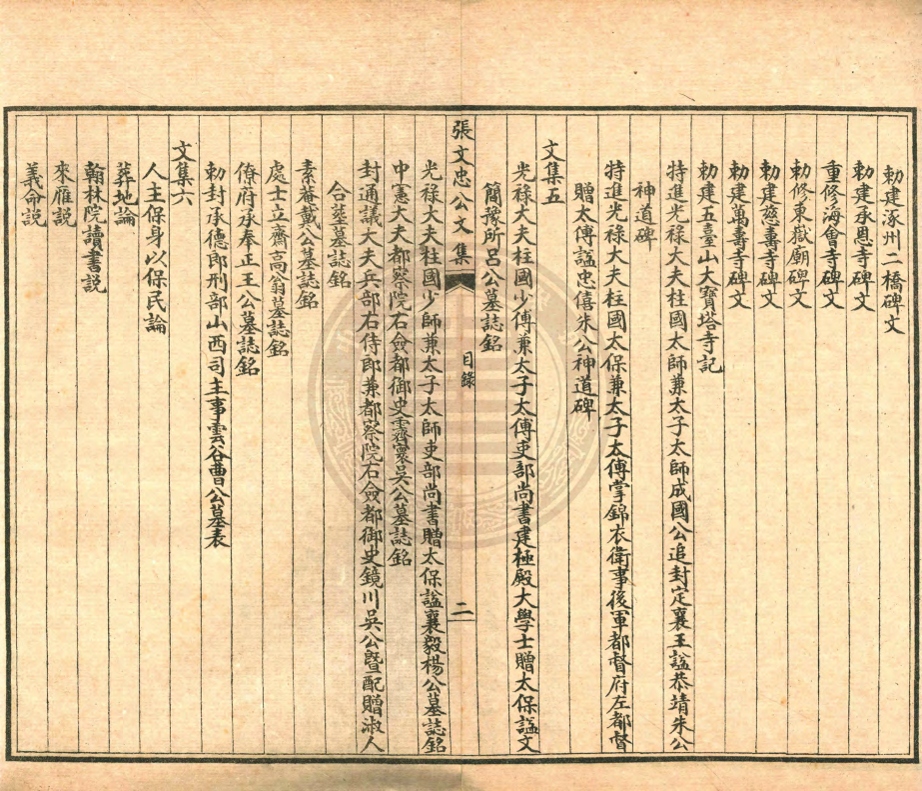 勅建涿州二橋碑文
勅建承恩寺碑文
重修海會寺碑文
勅修東嶽廟碑文
勅建慈壽寺碑文
勅建萬壽寺碑文
勅建五臺山大寶塔寺記
特進光祿大夫柱國太師兼太子太師成國公追封定襄王諡恭靖朱公
神道碑
特進光祿大夫柱國太保兼太子太傅掌錦衣衛事後軍都督府左都督
贈太傅諡忠僖朱公神道碑
文集五
光祿大夫柱國少傅兼太子太傅吏部尚書建極殿大學士贈太保諡文
簡豫所呂公墓誌銘
張文忠公文集
目錄
二
光祿大夫柱國少師兼太子太師吏部尚書贈太保諡襄毅楊公墓誌銘
中憲大夫都察院右僉都御史霽寰吳公墓誌銘
封通議大夫兵部右侍郎兼都察院右僉都御史鏡川吳公暨配贈淑人
合葬墓誌銘
素菴戴公墓誌銘
處士立齋高翁墓誌銘
僚府承奉正王公墓誌銘
勅封承德郎刑部山西司主事雲谷曹公墓表
文集六
人主保身以保民論
葬地論
翰林院讀書說
來雁說
義命說